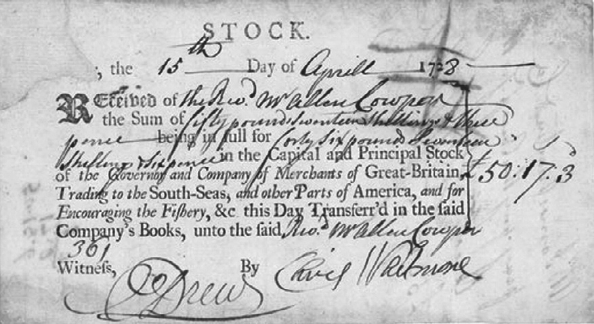 STOCK.
, the 15th Day of Aprill 1728
Received of the Revd. Mr Allen Cowper
the Sum of fifty pounds Seventeen Shillings & three
pence being in full for forty Six pounds Seventeen
Shillings & Six pence in the Capital and Principal Stock
of the Governor and Company of Merchants of Great-Britain, £50:17:3
Trading to the South-Seas, and other Parts of America, and for
Encouraging the Fishery, &c this Day Transferr'd in the ſaid
Company's Books, unto the ſaid Revd. Mr Allen Cowper
361
Witneſs, Drew By Whitmore